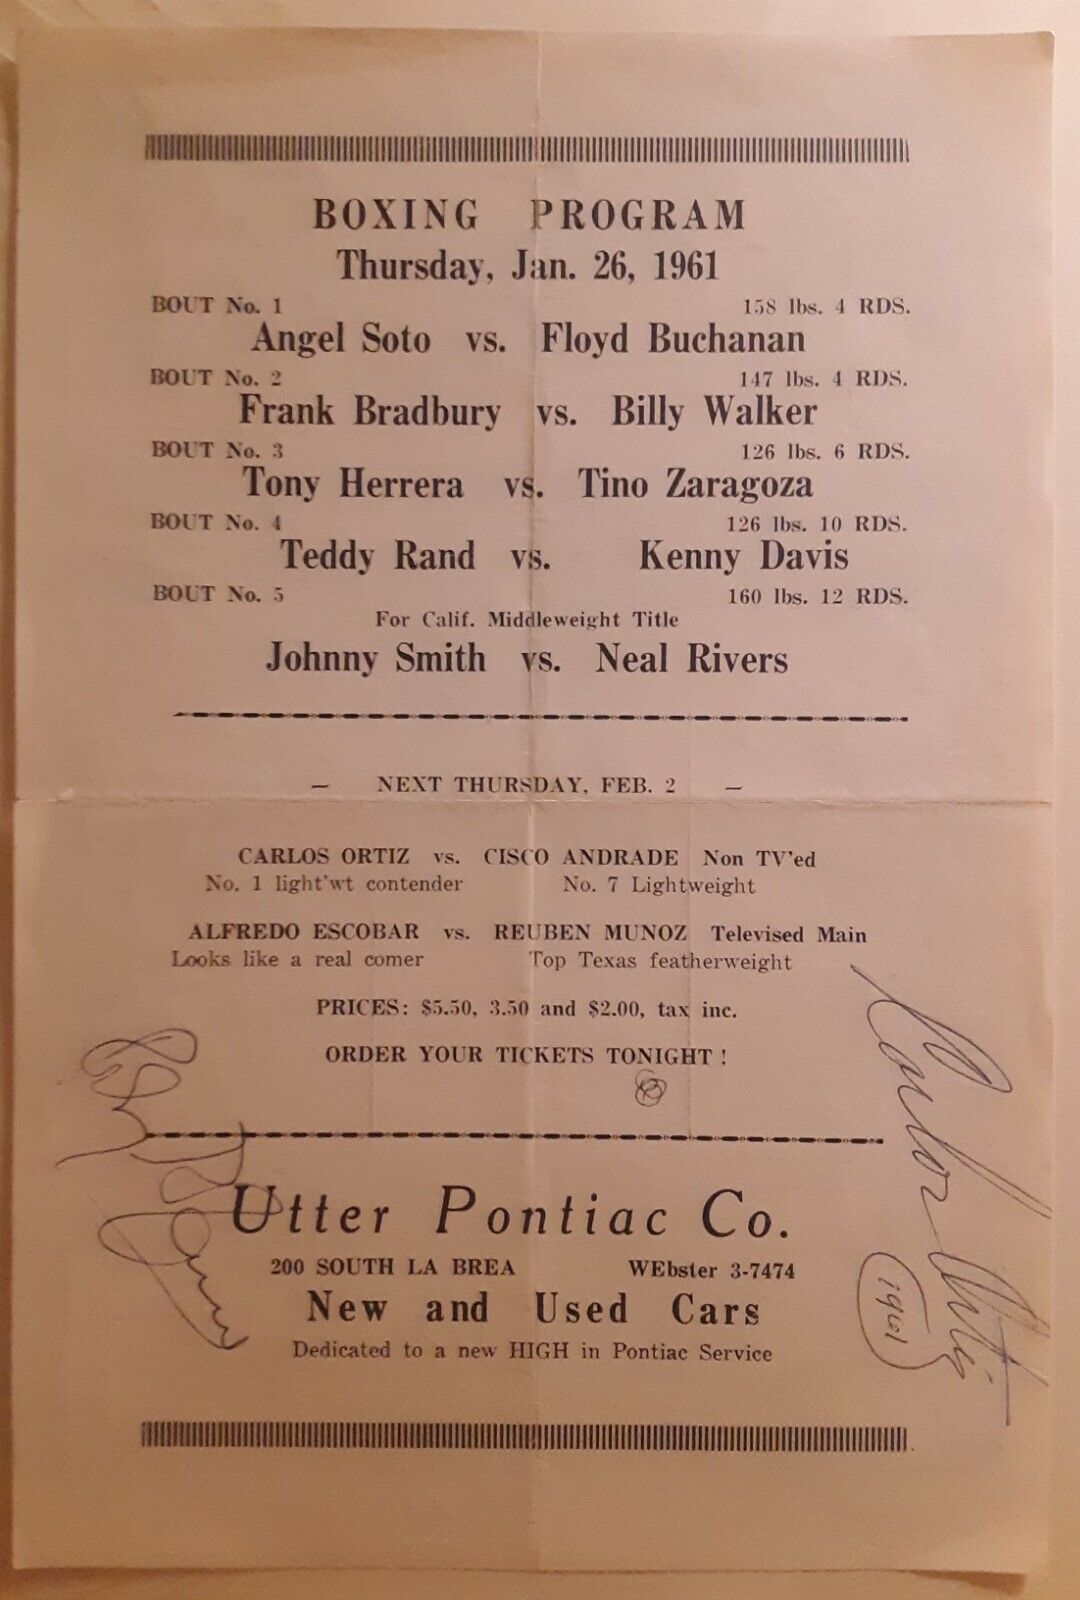 BOXING PROGRAM
Thursday, Jan. 26, 1961
BOUT No. 1 158 lbs. 4 RDS.
Angel Soto vs. Floyd Buchanan
BOUT No. 2 147 lbs. 4 RDS.
Frank Bradbury vs. Billy Walker
BOUT No. 3 126 lbs. 6 RDS.
Tony Herrera vs. Tino Zaragoza
BOUT No. 4 126 lbs. 10 RDS.
Teddy Rand vs. Kenny Davis
BOUT No. 5 160 lbs. 12 RDS.
For Calif. Middleweight Title
Johnny Smith vs. Neal Rivers
— NEXT THURSDAY, FEB. 2 —
CARLOS ORTIZ vs. CISCO ANDRADE Non TV'ed
No. 1 light'wt contender No. 7 Lightweight
ALFREDO ESCOBAR vs. REUBEN MUNOZ Televised Main
Looks like a real comer Top Texas featherweight
PRICES: $5.50, 3.50 and $2.00, tax inc.
ORDER YOUR TICKETS TONIGHT !
Utter Pontiac Co.
200 SOUTH LA BREA WEbster 3-7474
New and Used Cars
Dedicated to a new HIGH in Pontiac Service
1961